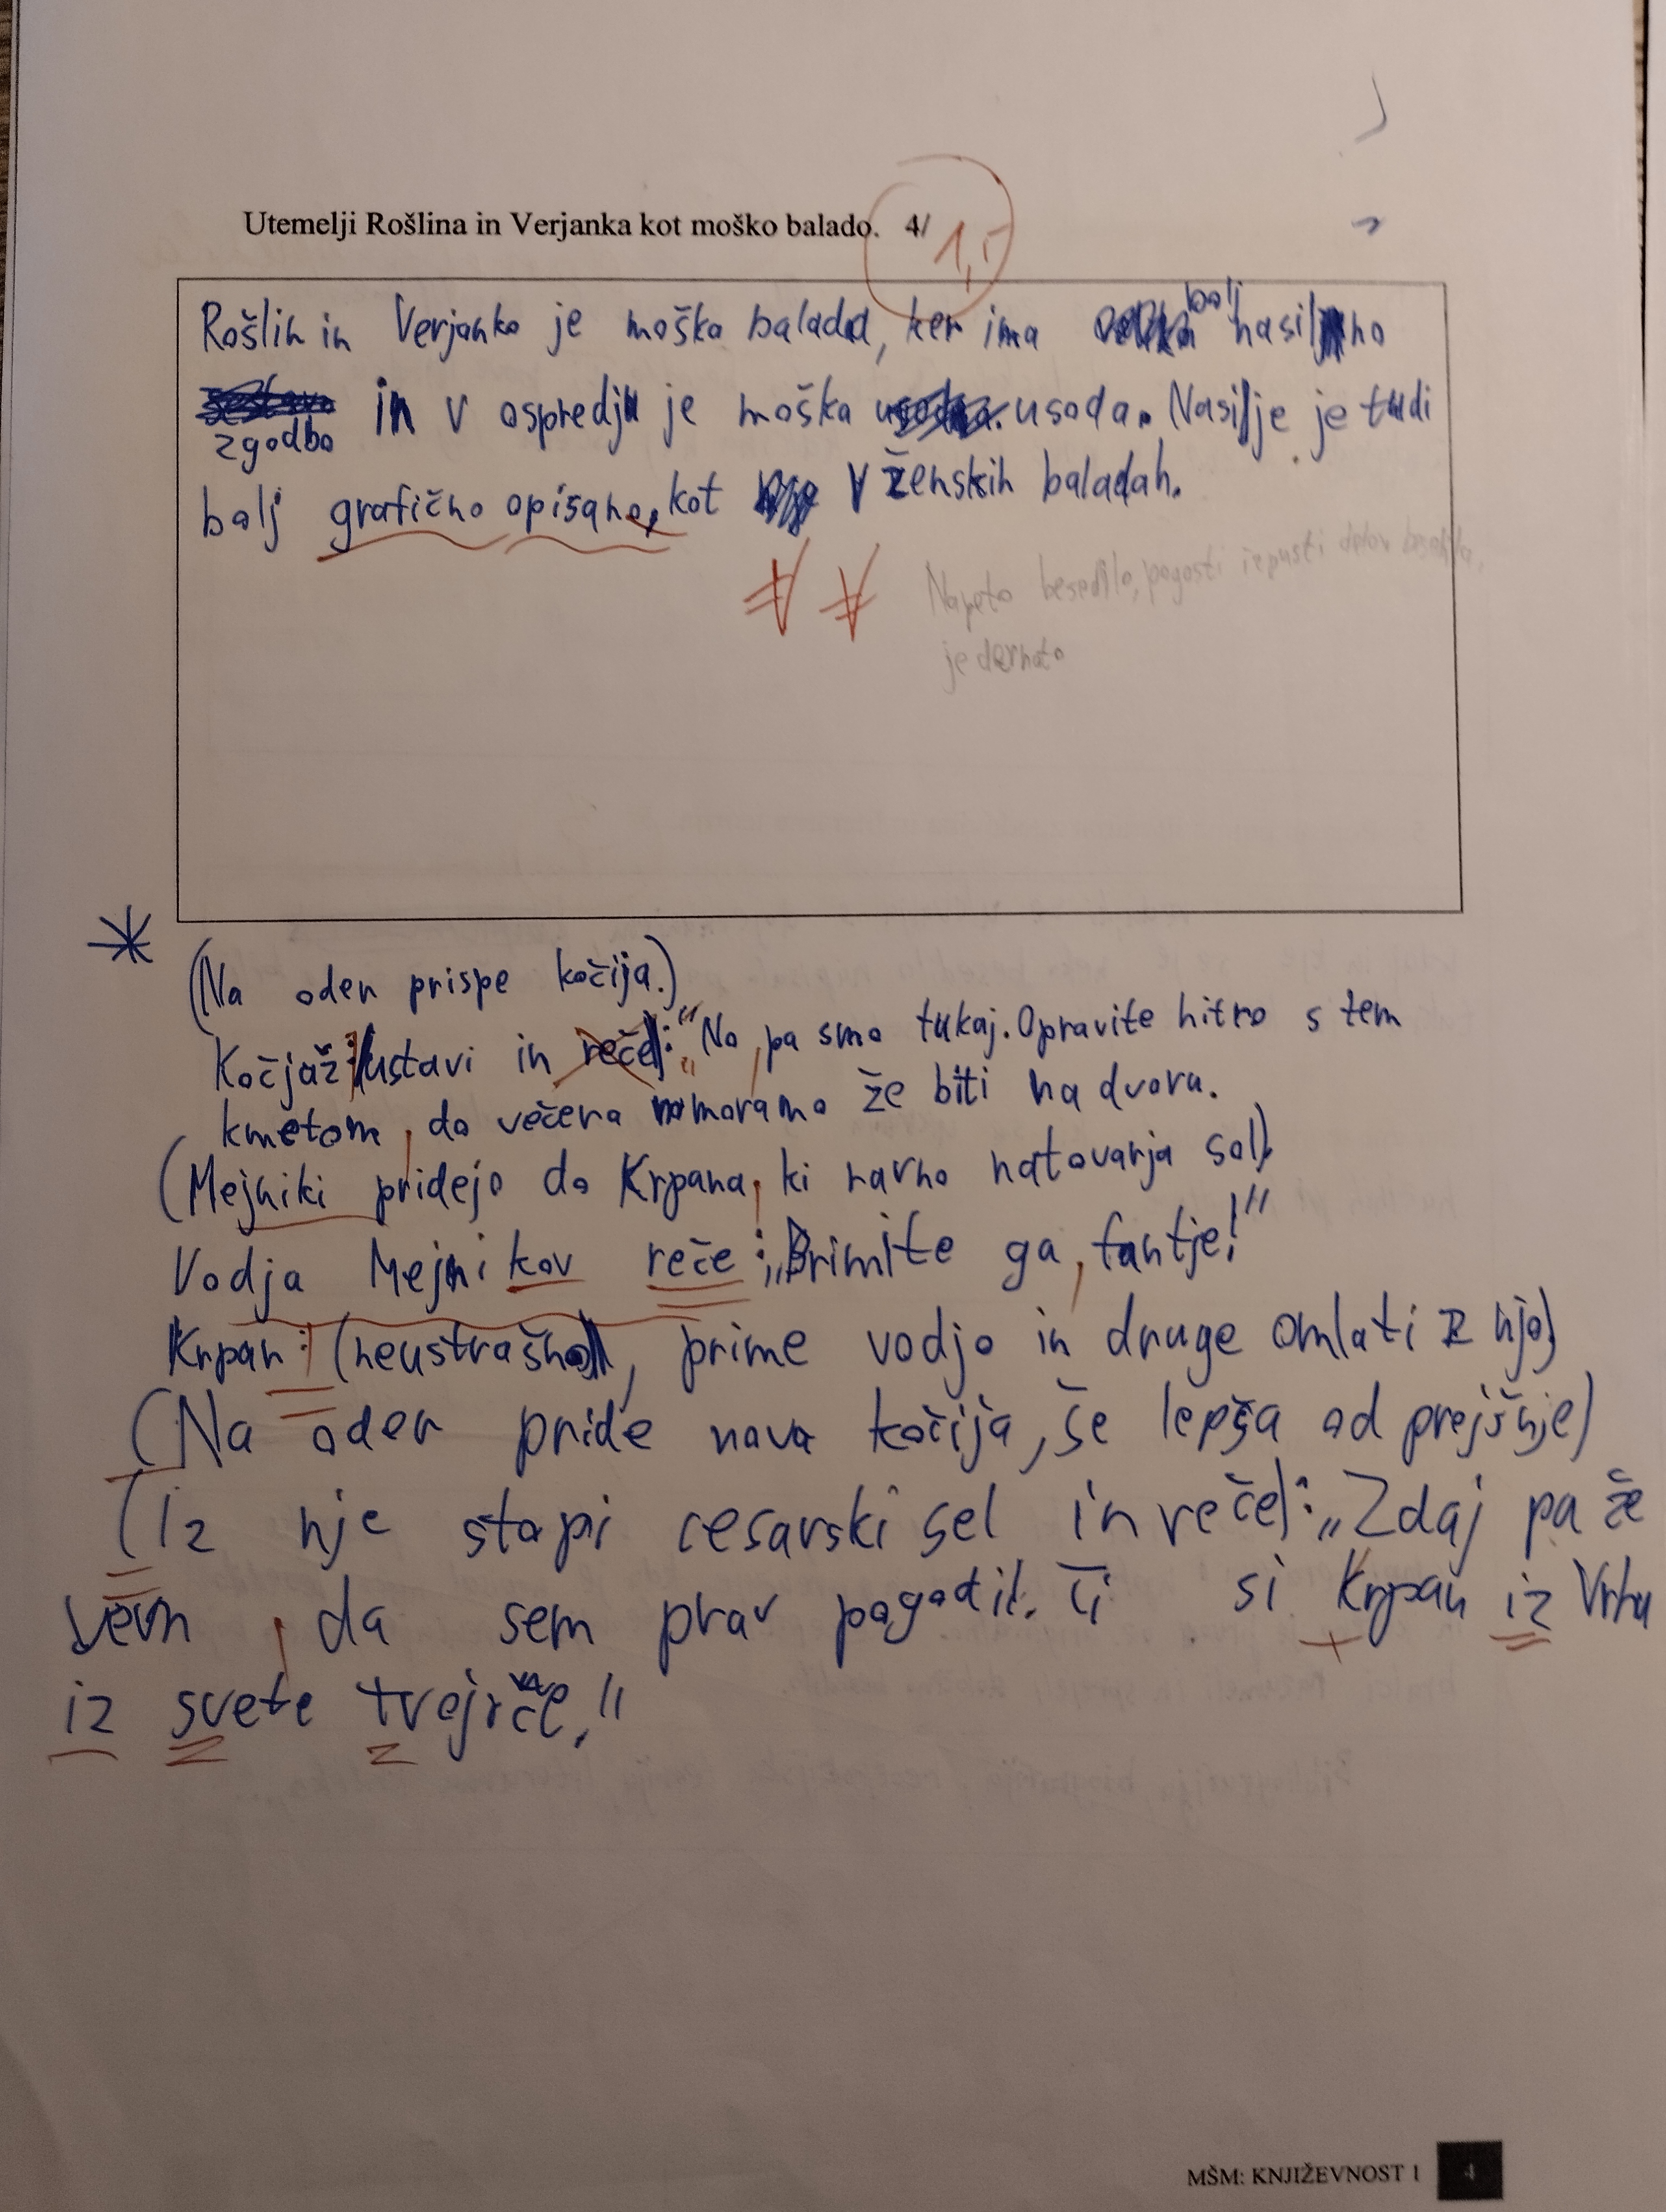 Utemelji Rošlina in Verjanka kot moško balado. 4/ 1,5
Rošlin in Verjanko je moška balada, ker ima bolj nasilno
zgodbo in v ospredju je moška usoda. Nasilje je tudi
bolj grafično opisano, kot v ženskih baladah.
Napeto besedilo, pogosti izpusti delov besedila,
je
(Na oder prispe kočija.)
Kočjaž: ustavi in reče: "No, pa smo tukaj. Opravite hitro s tem
kmetom, do večera moramo že biti na dvoru.
(Mejniki pridejo do Krpana, ki ravno natovarja sol)
Vodja Mejnikov reče: „Primite ga, fantje!"
Krpan: (neustrašno), prime vodjo in druge omlati z njo)
(Na oder pride nova kočija, še lepša od prejšnje)
(Iz nje stopi cesarski sel in reče): „Zdaj pa že
vem, da sem prav pogodil. Ti si Krpan iz Vrha
iz svete tvojrče."
MŠM: KNJIŽEVNOST 1 4